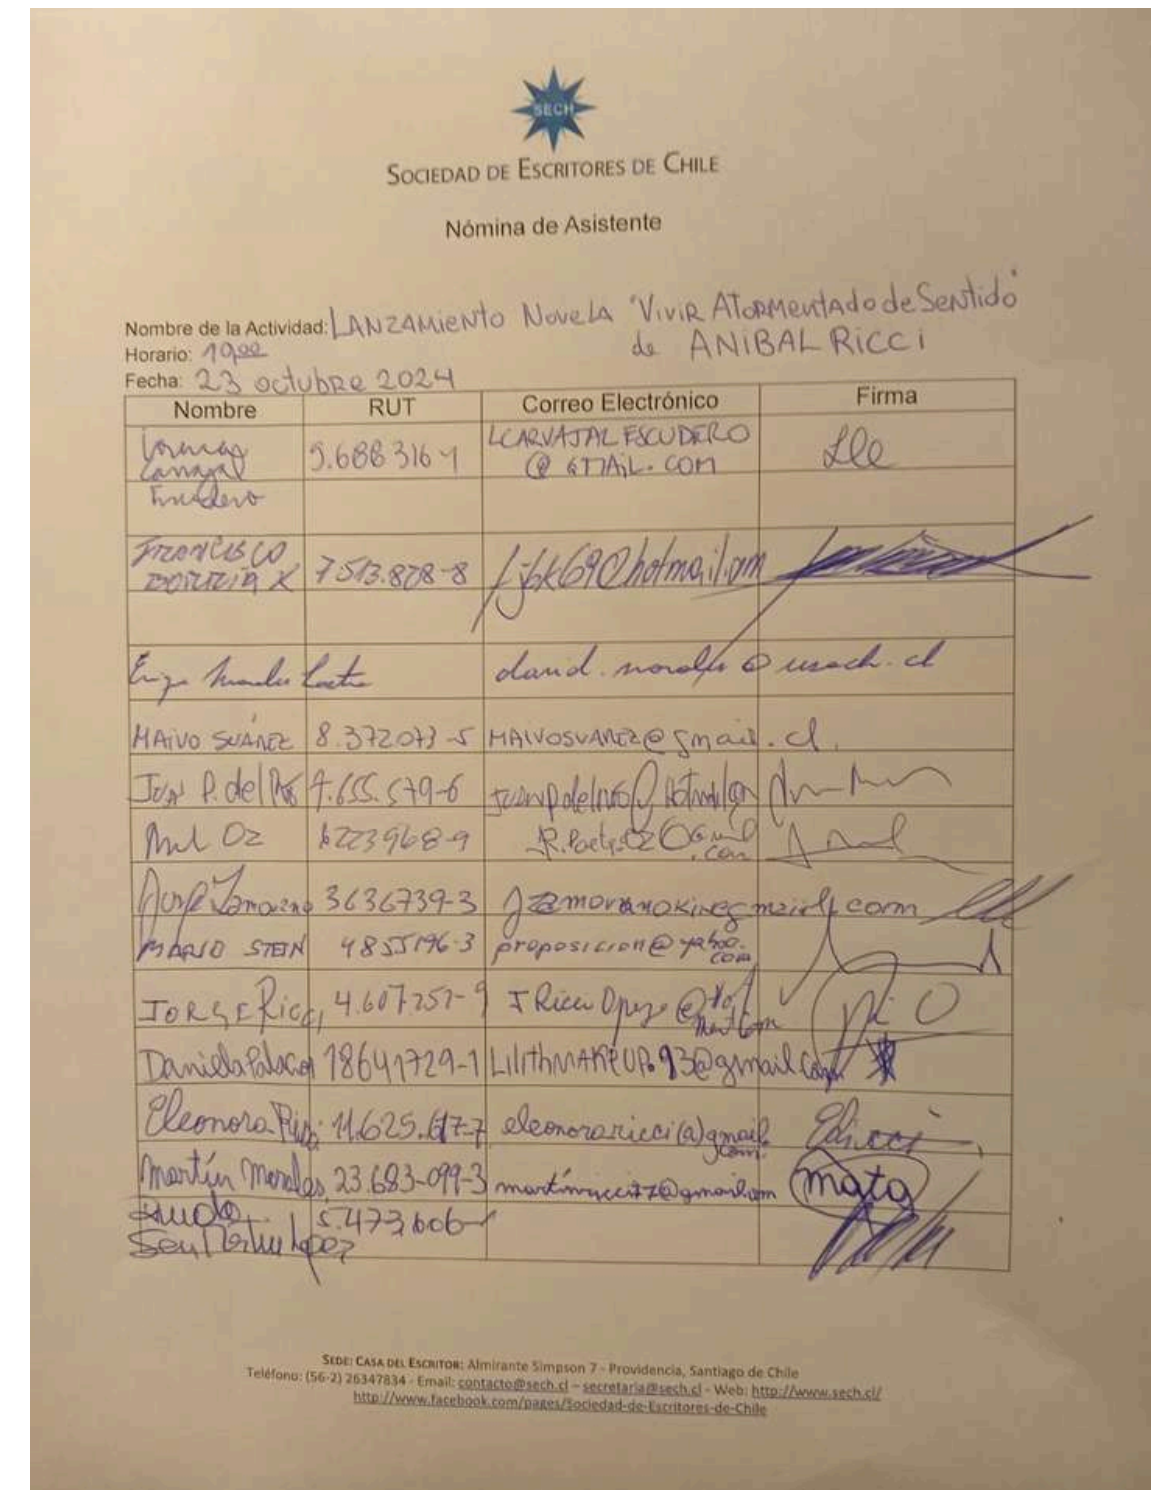 SECH
SOCIEDAD DE ESCRITORES DE CHILE
Nómina de Asistente
Nombre de la Actividad: LANZAMIENTO NOVELA "VIVIR ATORMENTADO de SENTIDO"
Horario: 19,00 de ANIBAL RICCI
Fecha: 23 octubre 2024
Nombre RUT Correo Electrónico Firma
LCARVAJALESCUDERO
Carvajal 9.688316-1 @ GMAIL.COM
Escudero
FRANCISCO
7513.828-8 fjbk69@hotmail.com
david.morales@usach.cl
MAIVO SUÁREZ 8.372073-5 MAIVOSUAREZ@gmail.cl
P. del 7.655.579-6
Oz 6223968-9
.com
3636739-3
MARIO STEIN 4855196-3 proposicion@yahoo.
com
JORGE Ricci 4.607257-9 J Ricci
Daniela Palacios 18641729-1 LilithMAKEUP.93@gmail.com
Eleonora Ricci 11.625.617-7 eleonoraricci(a)gmail.
com
Martín Morales 23.683-099-3 martinricci77@gmail.com mata
5.473.606-1
López
SEDE: CASA DEL ESCRITOR: Almirante Simpson 7 - Providencia, Santiago de Chile
Teléfono: (56-2) 26347834 - Email: contacto@sech.cl – secretaria@sech.cl - Web: http://www.sech.cl/
http://www.facebook.com/pages/Sociedad-de-Escritores-de-Chile